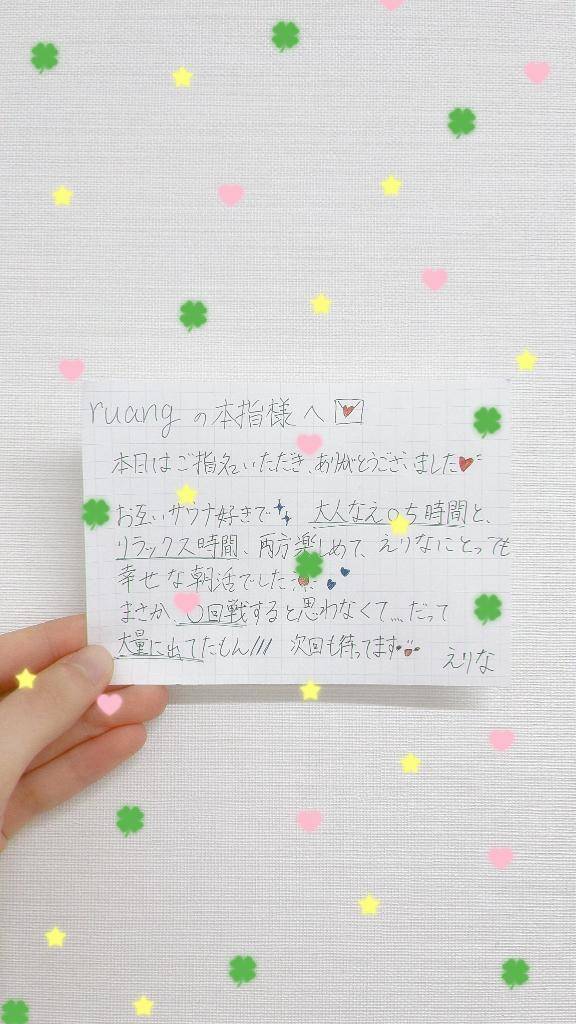 ruangの本指様へ
本日はご指名いただき、ありがとうございました
お互いサウナ好きで 大人なえ〇ち時間と、
リラックス時間、両方楽しめて、えりなにとっても
幸せな朝活でした
まさか〇回戦すると思わなくて....だって
大量に出てたもん/// 次回も待ってます
えりな